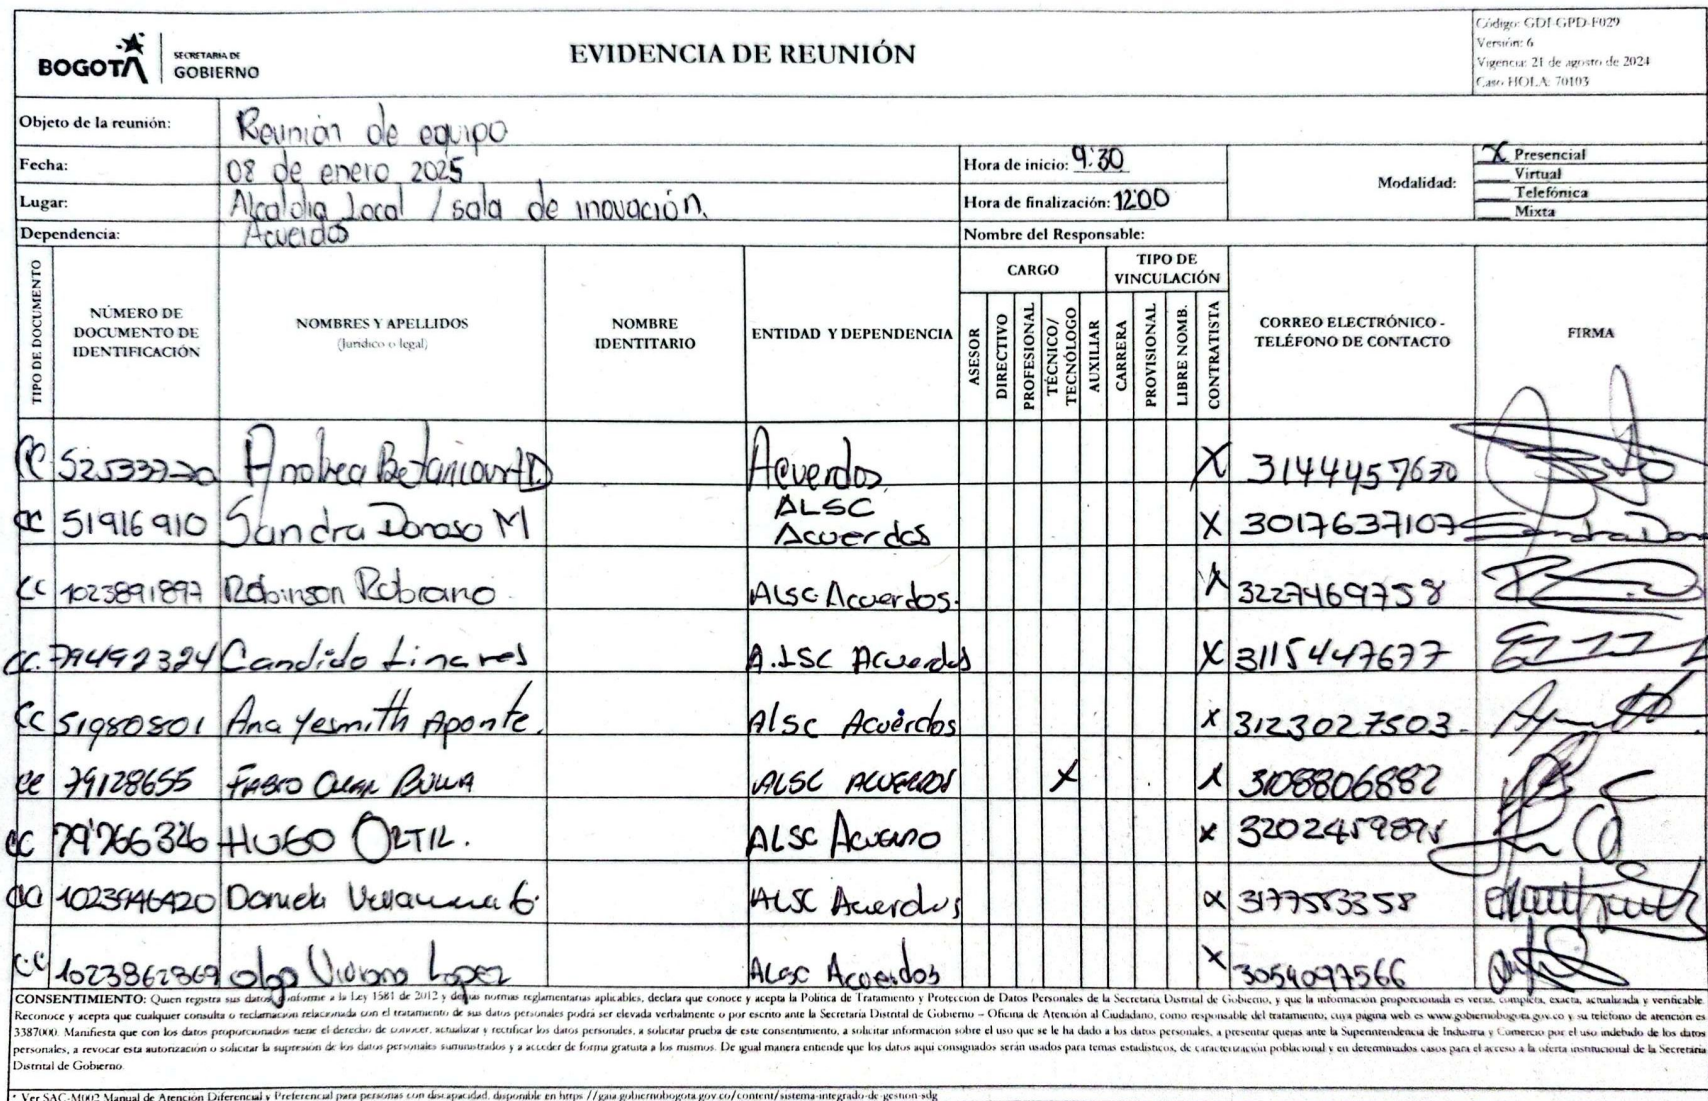 BOGOTÁ
SECRETARÍA DE
GOBIERNO
EVIDENCIA DE REUNIÓN
Código: GDI-GPD-F029
Versión: 6
Vigencia: 21 de agosto de 2024
Caso HOLA: 70103
Objeto de la reunión: Reunión de equipo
Fecha: 08 de enero 2025
Hora de inicio: 9:30
Lugar: Alcaldia Local / sala de inovación.
Hora de finalización: 1200
Modalidad:
X Presencial
Virtual
Telefónica
Mixta
Dependencia: Acuerdos
Nombre del Responsable:
TIPO DE DOCUMENTO
NÚMERO DE DOCUMENTO DE IDENTIFICACIÓN
NOMBRES Y APELLIDOS
(Jurídico o legal)
NOMBRE IDENTITARIO
ENTIDAD Y DEPENDENCIA
CARGO
ASESOR
DIRECTIVO
PROFESIONAL
TÉCNICO/ TECNÓLOGO
AUXILIAR
TIPO DE VINCULACIÓN
CARRERA
PROVISIONAL
LIBRE NOMB.
CONTRATISTA
CORREO ELECTRÓNICO - TELÉFONO DE CONTACTO
FIRMA
CC Andrea Betancourt D Acuerdos X 3144457630
CC 51916910 Sandra Donoso M ALSC Acuerdos X 3017637107 Sandra Dono
CC 1023891897 Robinson ALSC Acuerdos. X 3227469758
CC. 79492324 Candido Linares A.LSC Acuerdos X 3115447677
CC 51980801 Ana Yesmith Aponte. Alsc Acuerdos X 3123027503
CC 79128655 FABIO BULLA ALSC ACUERDOS X X 3108806882
CC 79'766326 HUGO ORTIZ. ALSC Acuerdo X
CC 1023946420 Daniela ALSC Acuerdos X 3177583358
CC 1023862869 Olga Viviana Lopez ALSC Acuerdos X 3054097566
CONSENTIMIENTO: Quien registra sus datos, conforme a la Ley 1581 de 2012 y demás normas reglamentarias aplicables, declara que conoce y acepta la Política de Tratamiento y Protección de Datos Personales de la Secretaría Distrital de Gobierno, y que la información proporcionada es veraz, completa, exacta, actualizada y verificable.
Reconoce y acepta que cualquier consulta o reclamación relacionada con el tratamiento de sus datos personales podrá ser elevada verbalmente o por escrito ante la Secretaría Distrital de Gobierno – Oficina de Atención al Ciudadano, como responsable del tratamiento, cuya página web es www.gobiernobogota.gov.co y su teléfono de atención es
3387000. Manifiesta que con los datos proporcionados tiene el derecho de conocer, actualizar y rectificar los datos personales, a solicitar prueba de este consentimiento, a solicitar información sobre el uso que se le ha dado a los datos personales, a presentar quejas ante la Superintendencia de Industria y Comercio por el uso indebido de los datos
personales, a revocar esta autorización o solicitar la supresión de los datos personales suministrados y a acceder de forma gratuita a los mismos. De igual manera entiende que los datos aquí consignados serán usados para temas estadísticos, de caracterización poblacional y en determinados casos para el acceso a la oferta institucional de la Secretaría
Distrital de Gobierno.
* Ver SAC-M002 Manual de Atención Diferencial y Preferencial para personas con discapacidad, disponible en https //gaia.gobiernobogota.gov.co/content/sistema-integrado-de-gestion-sdg